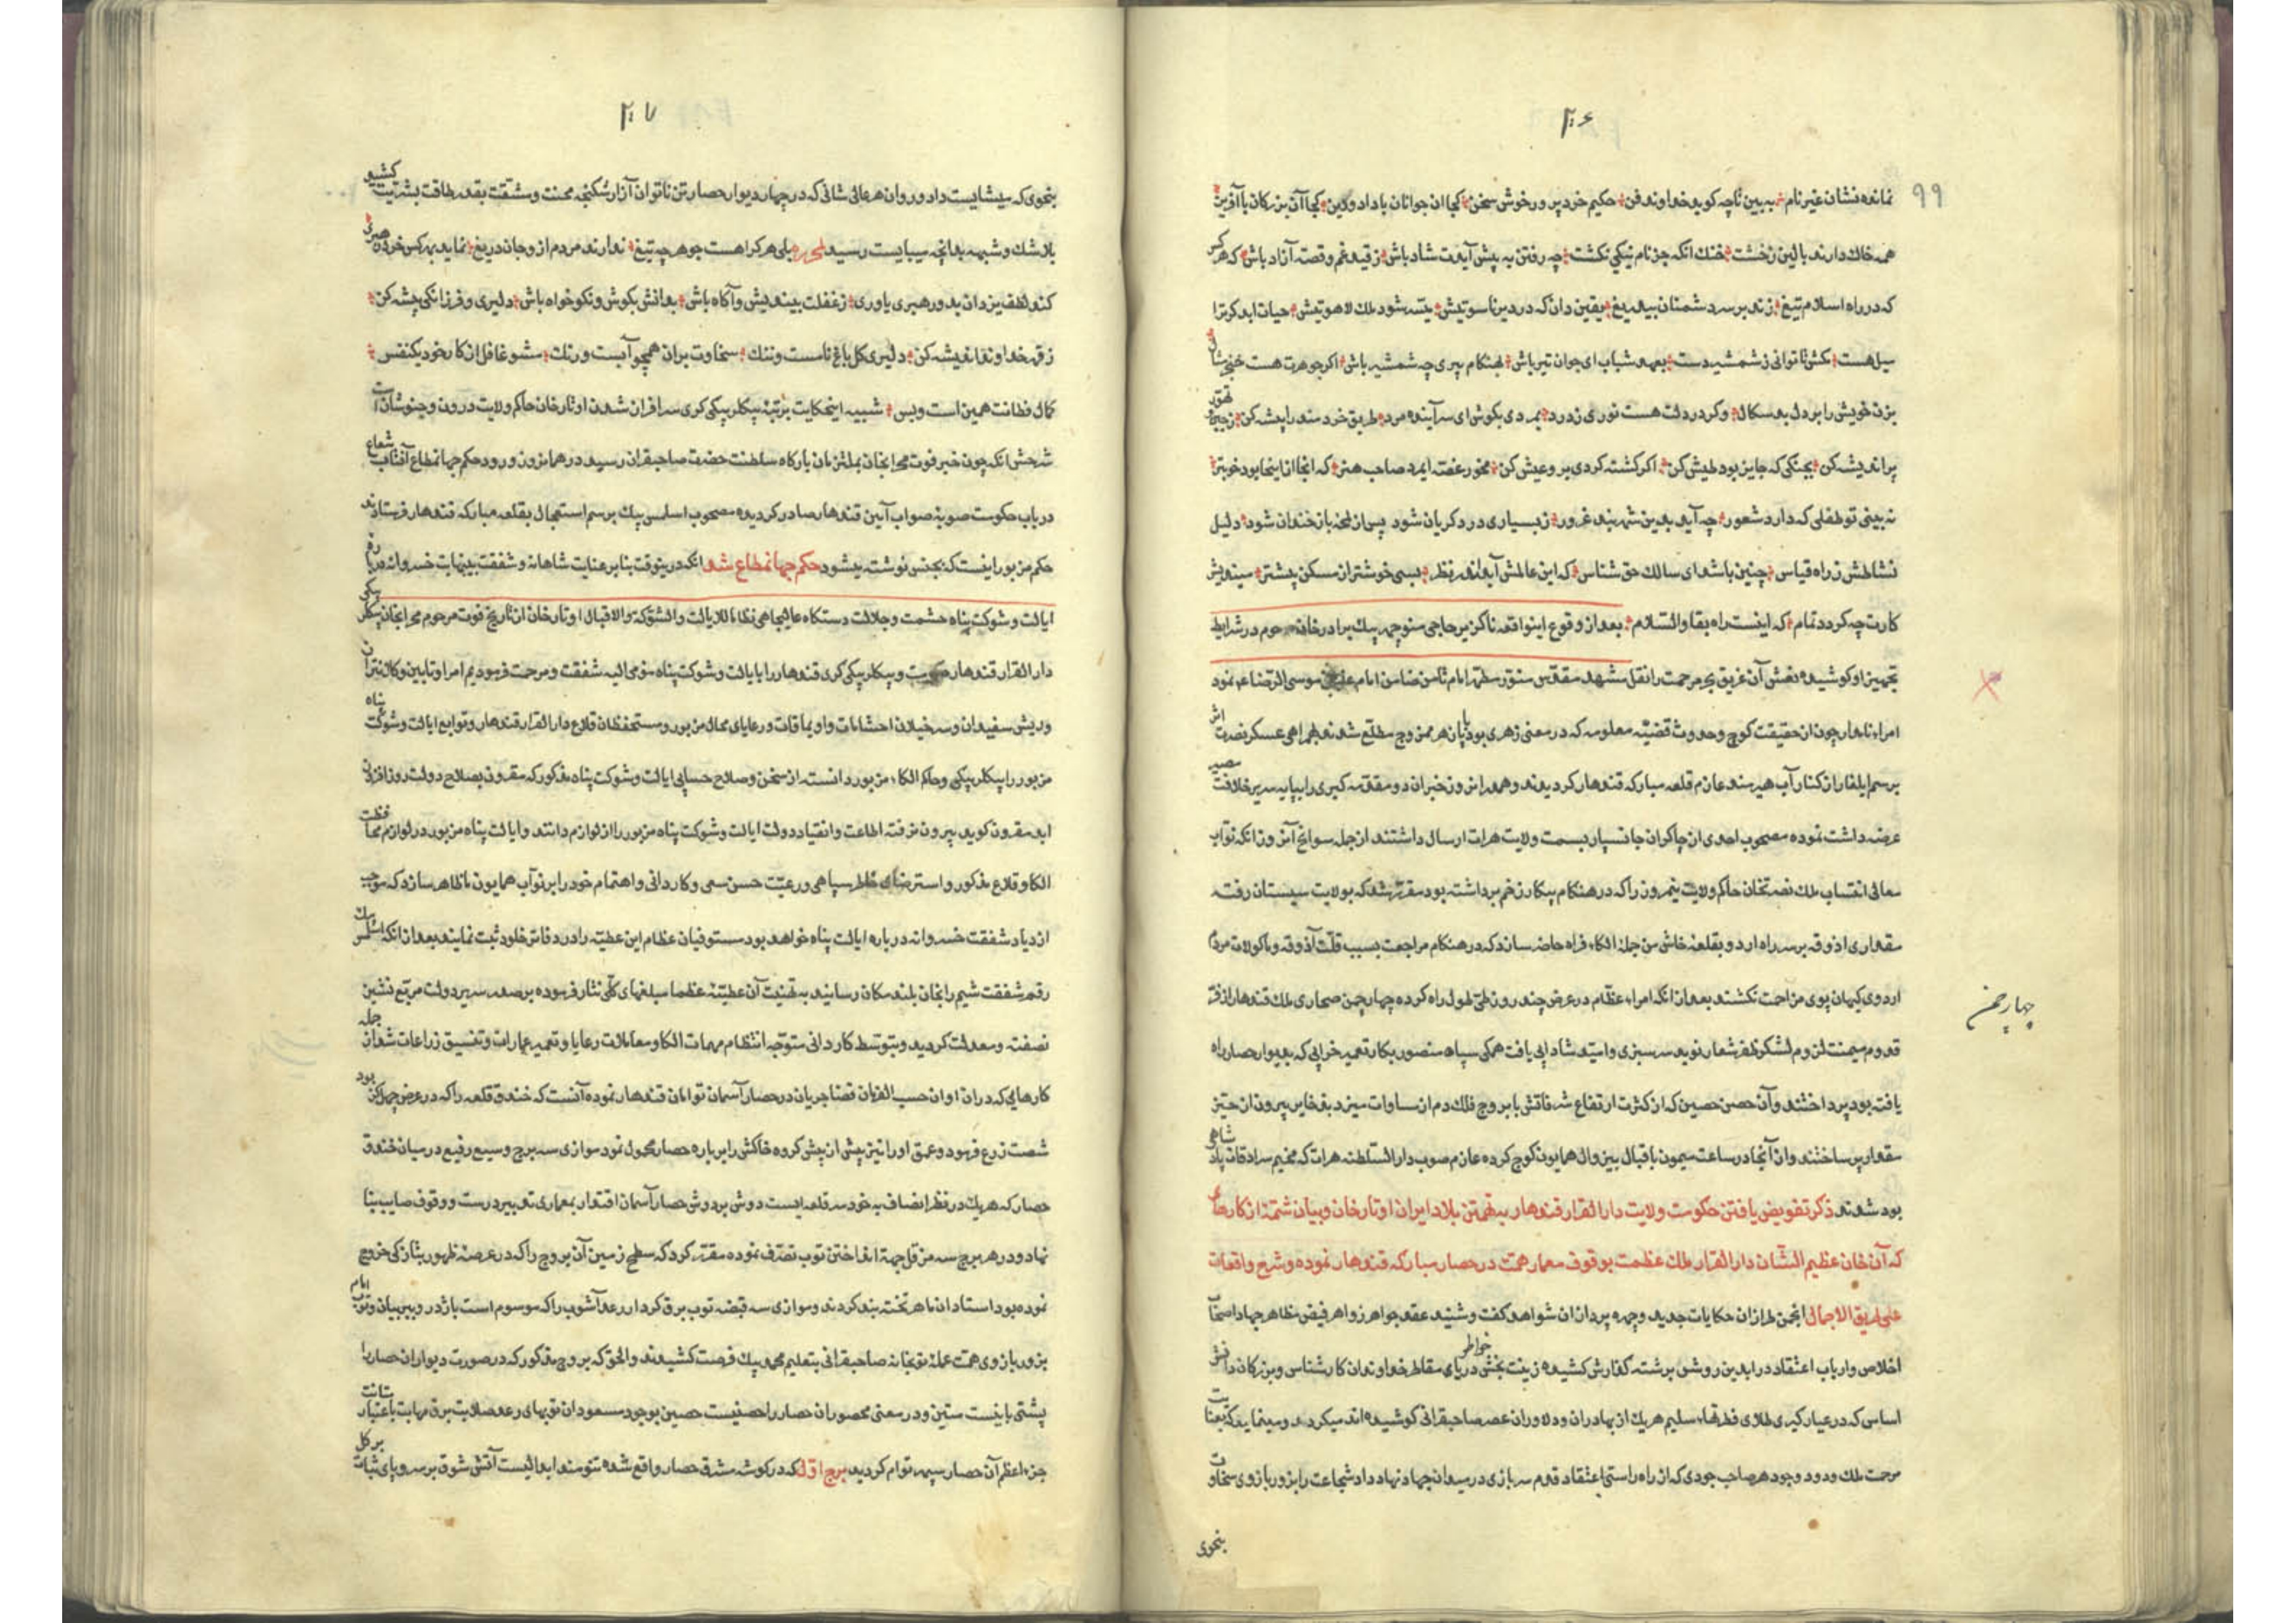 ۲۰۶
۹۹
نمانده نشان غیر نام به بین تاچه کوید خداوند فن حکیم خرد پرور خوش سخن کجا ان جوانان با داد و دین کجا آن بزرکان با آفرین
همه خاک دارند بالین ز خشت خنک انکه جز نام نیکی نکشت چه رفتن به پیش آیدت شاد باش ز قید غم و قصه آزاد باش که هر کس
که در راه اسلام تیغ زند بر سر دشمنان بیدریغ یقین دان که در دیر ناسوتیش شود ملک لاهوتیش حیات ابد کر ترا
میل هست مکش تا توانی ز شمشیر دست بعهد شباب ای جوان تیر باش بهنکام پیری چه شمشیر باش اکر جوهرت هست خنجر مثال
بزن خویش را بر دل بد سکال وکر در دلت هست نوری ز درد بمردی بکوش ای سرآینده مرد طریق خردمند را پیشه کن ز تهور
پر اندیشه کن بجنکی که جایز بود طیش کن اکر کشته کردی برو عیش کن مخور غصه ایمرد صاحب هنر که انجا از اینجا بود خوبتر
نه بینی تو طفلی که دارد شعور چه آید بدین شهر بند غرور ز بسیاری درد کریان شود پس از لحظه باز خندان شود دلیل
نشاطش ز راه قیاس چنین باشد ای سالک حق شناس که این عالمش آید اندر نظر بسی خوشتر از مسکن پیشتر میندیش
کارت چه کردد تمام که اینست راه بقا والسلام بعد از وقوع اینواقعه ناکزیر حاجی منوچهر بیک برادر خان مرحوم در شرایط
تجهیز او کوشیده نعش آن غریق بحر مرحمت را نقل مشهد مقدس منور مطهر امام ثامن ضامن امام علی بن موسی الرضا ع نمود
امراء نامدار چون از حقیقت کوچ وحدوث قضیه معلومه که در معنی زهری بود مطلع شدند بهمراهی عسکر نصرت اثر
برسم ایلغار از کنار آب هیرمند عازم قلعه مبارکه قندهار کردیدند وهمدران روز خبر ان دو مقدمه کبری را بپایه سریر خلافت مصیر
عرضه داشت نموده مصحوب احدی از چاکران جانسپار بسمت ولایت هرات ارسال داشتند از جمله سوانح آنروز انکه نواب
معالی انتساب ملک نصرتخان حاکم ولایت نیمروز را که در هنکام پیکار زخم برداشته بود مقرر شد که بولایت سیستان رفته
مقداری اذوقه بر سر راه اردو بقلعه خاش من جمله الکاء فراه حاضر سازد که در هنکام مراجعت بسبب قلت آذوقه وماکولات مردم
اردوی کیهان پوی مزاحمت نکشند بعد از انکه امراء عظام در عرض چند روز طی طول راه کرده چهار چمن صحاری ملک قندهار از فر
چهار چمن
قدوم میمنت لزوم لشکر ظفر شعار نوید سرسبزی وامید شادابی یافت همکی سپاه منصور بکار تعمیر خرابی که بدیوار حصار راه
یافته بود پرداختند وآن حصن حصین که از کثرت ارتفاع شرفاتش با بروج فلک دم از مساوات میزد بذخایر بیرون از حیز
مقدار پر ساختند واز آنجا در ساعت میمون باقبال بیزوال همایون کوچ کرده عازم صوب دار السلطنه هرات که مخیم سرادقات پادشاهی
بود شدند ذکر تفویض یافتن حکومت ولایت دار القرار قندهار بتهمتن بلاد ایران اوتار خان وبیان شمه از کارهای
که آن خان عظیم الشان دار القرار ملک عظمت بوقوف معمار همت در حصار مبارکه قندهار نموده وشرح واقعات
علی طریق الاجمال انجمن طرازان حکایات جدید وچهره پردازان شواهد کفت وشنید عقد جواهر زواهر فیض مظاهر جهاد اصحاب
اخلاص وارباب اعتقاد در ابدین روشن برشته کفارش کشیده زینت بخش خواطر دریای مقاطر خداوندان کارشناس وبزرکان دانش
اساس که در عیار کیری طلای فطرتهاء سلیم هریک از بهادران ودلاوران عصر صاحبقرانی کوشیده اند میکردد ومینماید که
مرحمت ملک ودود وجود هر صاحب جودی که از راه راستی اعتقاد قدم سربازی در میدان جهاد نهاد داد شجاعت را بزور بازوی سخاوت
بنحوی
۲۰۷
بنحوی که میشایست داد وروان هر عالی شانی که در چهار دیوار حصار تن ناتوان آزار شکنجه محنت ومشقت بقدر طاقت بشریت کشید
بلاشک وشبهه بدانچه میبایست رسید بلی هر کرا هست جوهر چه تیغ ندارند مردم ازو جان دریغ نماید بهر کس خرد
کند لطف یزدان بدو رهبری یاوری ز غفلت بیندیش وآکاه باش بدانش بکوش ونکو خواه باش دلیری وفرزانکی پیشه کن
ز قهر خداوند اندیشه کن دلیری کل باغ نامست وننک سخاوت بران همچو آبست ورنک مشو غافل از کار خود یکنفس
کمال فطانت همین است وبس شبیه اینحکایت برتبه بیکلر بیکی کری سرافراز شدن اوتار خان حاکم ولایت درون وخبوشان است
شرحش انکه چون خبر فوت محرابخان بملتزمان بارکاه سلطنت حضرت صاحبقران رسید در همانروز ورود حکم جهانمطاع آفتاب شعاع
در باب حکومت صوبه صواب آیین قندهار صادر کردیده مصحوب اسلمس بیک برسم استعجال بقلعه مبارکه قندهار فرستادند
حکم مزبور اینست که بجنس نوشته میشود حکم جهانمطاع شد انکه درینوقت بنابر عنایت شاهانه وشفقت بینهایت خسروانه درباره
ایالت وشوکت پناه حشمت وجلالت دستکاه عالیجاهی نظاما للایالت والشوکت والاقبال اوتار خان از تاریخ فوت مرحوم محرابخان بیکلر بیکی
دار القرار قندهار حکومت وبیکلر بیکی کری قندهار را بایالت وشوکت پناه مومی الیه شفقت ومرحمت فرمودیم امرا وتابین وکلانتران
وریش سفیدان وسرخیلان احشامات واویماقات ورعایای محال مزبور ومستحفظان قلاع دار القرار قندهار وتوابع ایالت وشوکت پناه
مزبور را بیکلر بیکی وحاکم الکاء مزبور دانسته از سخن وصلاح حسابی ایالت وشوکت پناه مذکور که مقرون بصلاح دولت روز افزون
ابد مقرون کوید بیرون نرفته اطاعت وانقیاد دولت ایالت وشوکت پناه مزبور را از لوازم دانند وایالت پناه مزبور در لوازم محافظت
الکا وقلاع مذکور واسترضای خاطر سپاهی ورعیت حسن سعی وکاردانی واهتمام خود را بر نواب همایون ما ظاهر سازد که موجب
ازدیاد شفقت خسروانه درباره ایالت پناه خواهد بود مستوفیان عظام این عطیه را در دفاتر خلود ثبت نمایند بعد از انکه اسلمس بیک
رقم شفقت شیم را بخان بلند مکان رسانید به تهنیت آن عطیه عظما مبلغهای کلی نثار فرموده بر صدر سریر دولت مربع نشین
نصفت ومعدلت کردید وبتوسط کاردانی متوجه انتظام مهمات الکا ومعاملات رعایا وتعمیر عمارات وتنسیق زراعات شد از جمله
کارهایی که دران اوان حسب الفرمان قضا جریان در حصار آسمان توامان قندهار نموده آنست که خندق قلعه را که در عرض چهل کز بود
شصت زرع فرمود وعمق او را نیز بیش از پیش کروه خاکش را بر باره حصار محول نمود موازی سه برج وسیع رفیع در میان خندق
حصار که هریک در نظر انصاف به خود سر قلعه ایست دوش بردوش حصار آسمان اقتدار بمعماری تدبیر درست ووقوف صایب بنا
نهاد ودر هر برج سه مزقل جهة انداختن توپ تصرف نموده مقرر کرد که سطح زمین آن بروج را که در عرصه ظهور بثازکی خروج
نموده بود استادان ماهر تخته بند کردند وموازی سه قبضه توپ برق کردار رعد آشوب را که موسوم است باژدر وببر بیان وتوپ امام
بزور بازوی همت عمله توپخانه صاحبقرانی بتعلیم محمد بیک فرصت کشیدند والحق که بروج مذکور که در صورت دیواران حصار را
پشتی بانیست متین ودر معنی محصوران حصار را حصنیست حصین بوجود مسعود ان توپهای رعد صلابت برق مهابت باعتبار متانت
جزء اعظم آن حصار سپهر توام کردید برج اول که در کوشه مشرق حصار واقع شده تنومند ابدالیست آتش شوق بر سر وپای ثبات بر کل